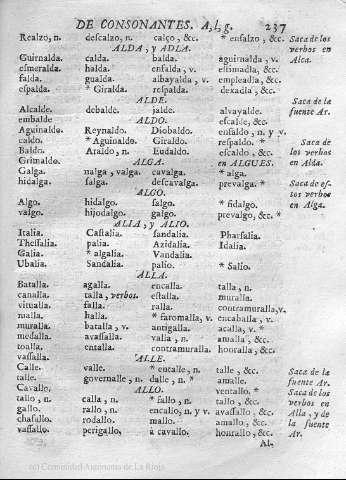 DE CONSONANTES. A, l, g. 237
Realzo, n. descalzo, n. calço, &c. * ensalzo, &c. Saca de los
ALDA, y ADLA. verbos en
Guirnalda. calda. balda. aguirnalda, v. Alca.
esmeralda. halda. ensalda, v. estimadla, &c.
falda. gualda. albayalda, v. empleadla, &c.
espalda. * Giralda. respalda. dexadla, &c.
ALDE. Saca de la
Alcalde. debalde. jalde. alvayalde. fuente Ar.
embalde ALDO. escalde, &c.
Aguinaldo. Reynaldo. Diobaldo. ensaldo, n. y v.
caldo. * Aguinaldo. Giraldo. respaldo. * Saca de
Baldo. Araldo, n. Eudaldo. escaldo, &c. los verbos
Grimaldo. ALGA. en ALGUES. en Alda.
Galga. nalga, valga. cavalga. * alga.
hidalga. salga. descavalga. prevalga. * Saca de es-
ALGO. tos verbos
Algo. hidalgo. salgo. * fidalgo. en Alga.
valgo. hijodalgo. galgo. prevalgo, &c. *
ALIA, y ALIO.
Italia. Castalia. sandalia. Pharsalia.
Thessalia. palia. Azidalia. Idalia.
Galia. * algalia. Vandalia.
Ubalia. Sandalia. palio. * Salio.
ALLA.
Batalla. agalla. encalla. talla, n.
canalla. talla, verbos. estalla. muralla.
vitualla. falla. ralla. contramuralla, v.
malla. halla. * faromalla, v. encaballa, v.
muralla. batalla, v. antigalla. acalla, v. *
medalla. avassalla. valla, n. amalla, &c.
toalla. entalla. contramuralla. honralla, &c.
vassalla. ALLE.
Calle. valle. * encalle, n. talle, &c. Saca de la
talle. governalle, n. dalle, n. * amalle. fuente Ar.
Cavalle. ALLO. ventallo. * Saca de los
tallo, n. calla, n. * fallo, n. tallo, &c. verbos en
gallo. rallo, n. encallo, n. y v. avassallo, &c. Alla, y de
chafallo. rodallo. mallo. amallo, &c. la fuente
vassallo. perigallo. à cavallo. honrallo, &c. Ar.
Al.
(c) Comunidad Autónoma de La Rioja